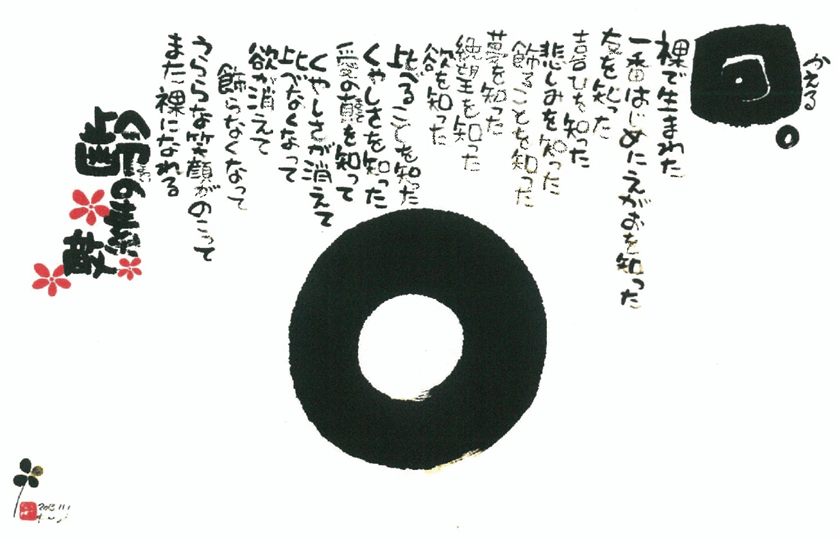 かえる
裸で生まれた
一番はじめにえがおを知った
友を知った
喜びを知った
悲しみを知った
飾ることを知った
夢を知った
絶望を知った
欲を知った
比べることを知った
くやしさを知った
愛の を知って
くやしさが消えて
比べなくなって
欲が消えて
飾らなくなって
うららな笑顔がのこって
また裸になれる